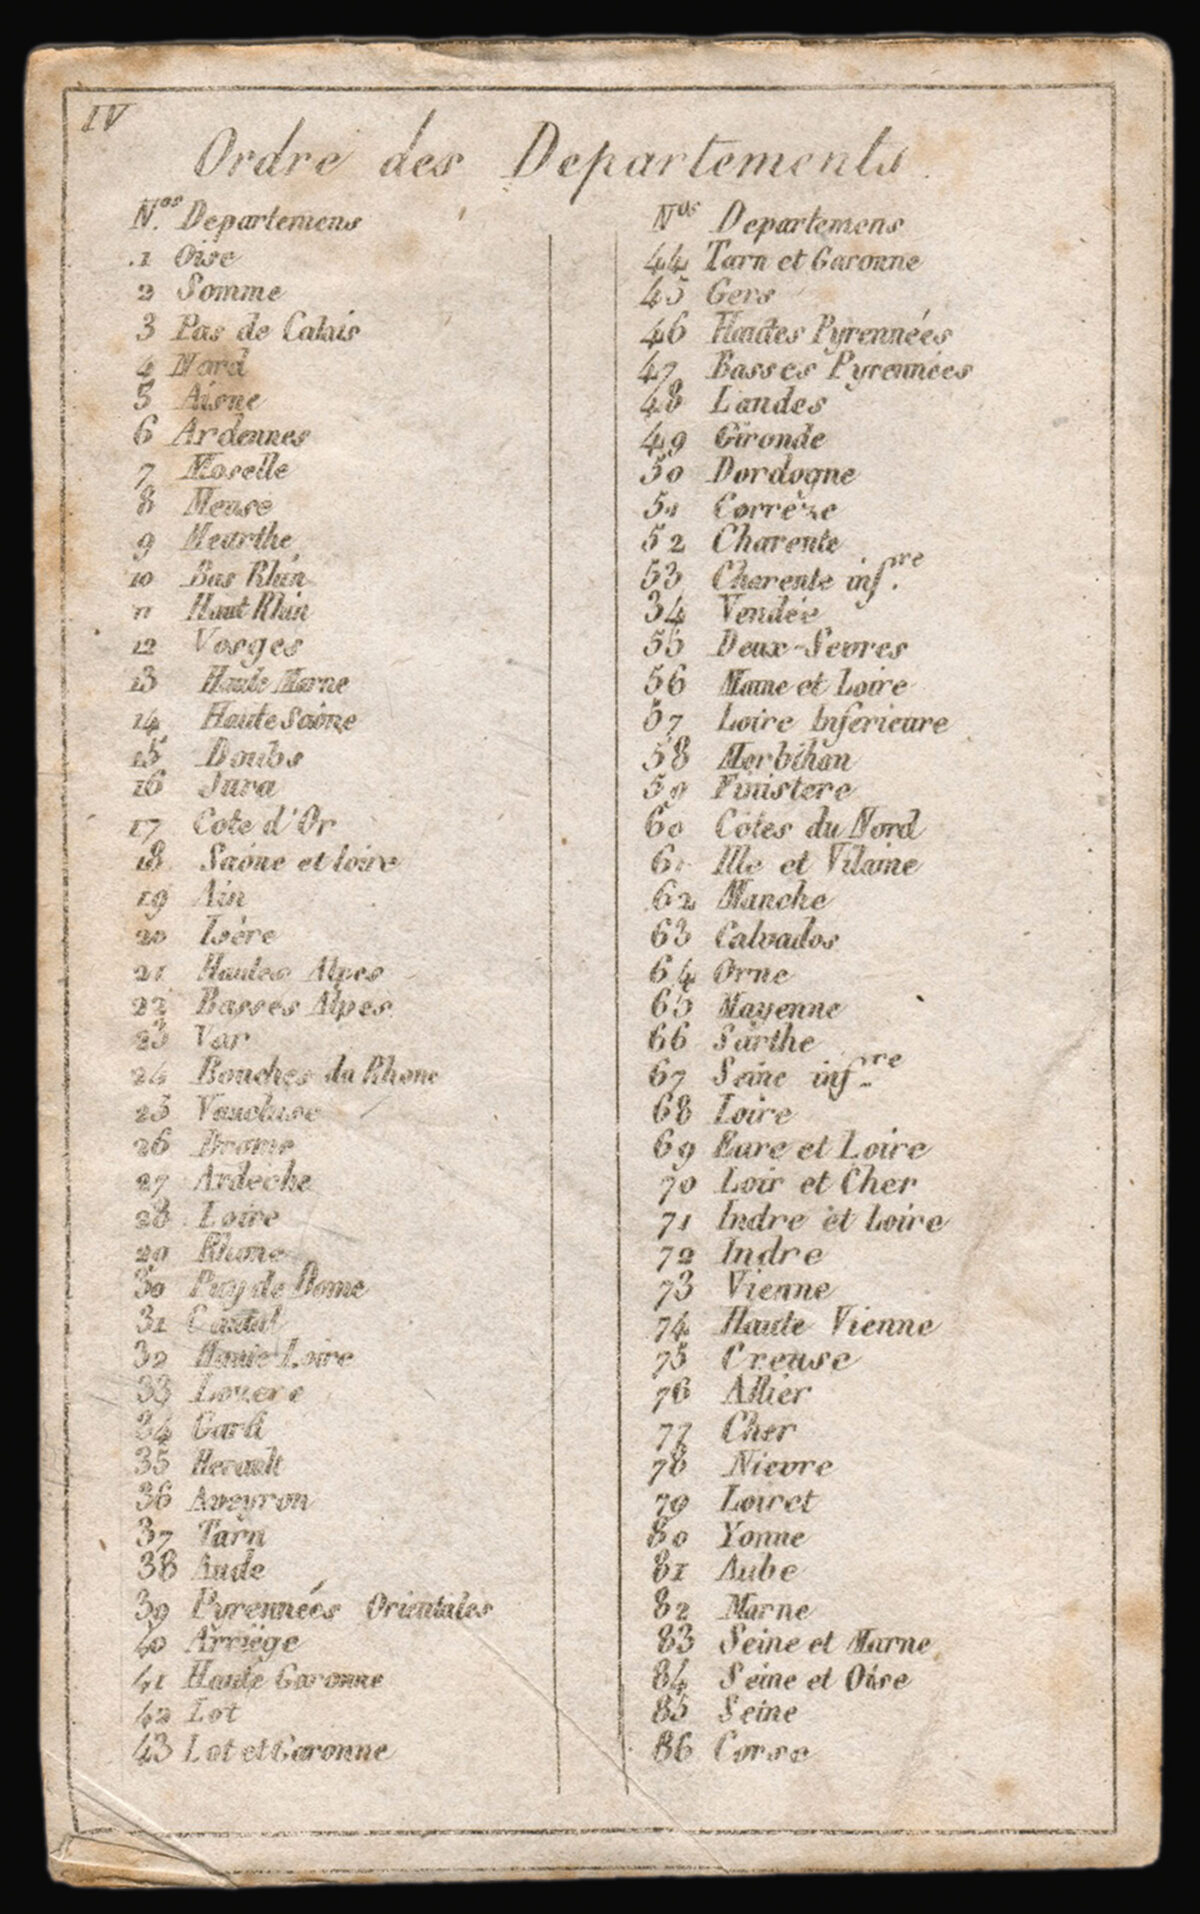 IV
Ordre des Departements.
N.os Departemens
1 Oise
2 Somme
3 Pas de Calais
4 Nord
5 Aisne
6 Ardennes
7 Moselle
8 Meuse
9 Meurthe
10 Bas Rhin
11 Haut Rhin
12 Vosges
13 Haute Marne
14 Haute Saône
15 Doubs
16 Jura
17 Cote d'Or
18 Saône et loire
19 Ain
20 Isère
21 Hautes Alpes
22 Basses Alpes
23 Var
24 Bouches du Rhone
25 Vaucluse
26 Drome
27 Ardeche
28 Loire
29 Rhone
30 Puy de Dome
31 Cantal
32 Haute Loire
33 Lozere
34 Gard
35 Herault
36 Aveyron
37 Tarn
38 Aude
39 Pyrennées Orientales
40 Arriège
41 Haute Garonne
42 Lot
43 Lot et Garonne
Nos Departemens
44 Tarn et Garonne
45 Gers
46 Hautes Pyrennées
47 Basses Pyrennées
48 Landes
49 Gironde
50 Dordogne
51 Corrèze
52 Charente
53 Charente inf.re
34 Vendée
55 Deux-Sevres
56 Maine et Loire
57 Loire Inferieure
58 Morbihan
59 Finistere
60 Côtes du Nord
61 Ille et Vilaine
62 Manche
63 Calvados
64 Orne
65 Mayenne
66 Sarthe
67 Seine inf.re
68 Loire
69 Eure et Loire
70 Loir et Cher
71 Indre et Loire
72 Indre
73 Vienne
74 Haute Vienne
75 Creuse
76 Allier
77 Cher
78 Nievre
79 Loiret
80 Yonne
81 Aube
82 Marne
83 Seine et Marne
84 Seine et Oise
85 Seine
86 Corse